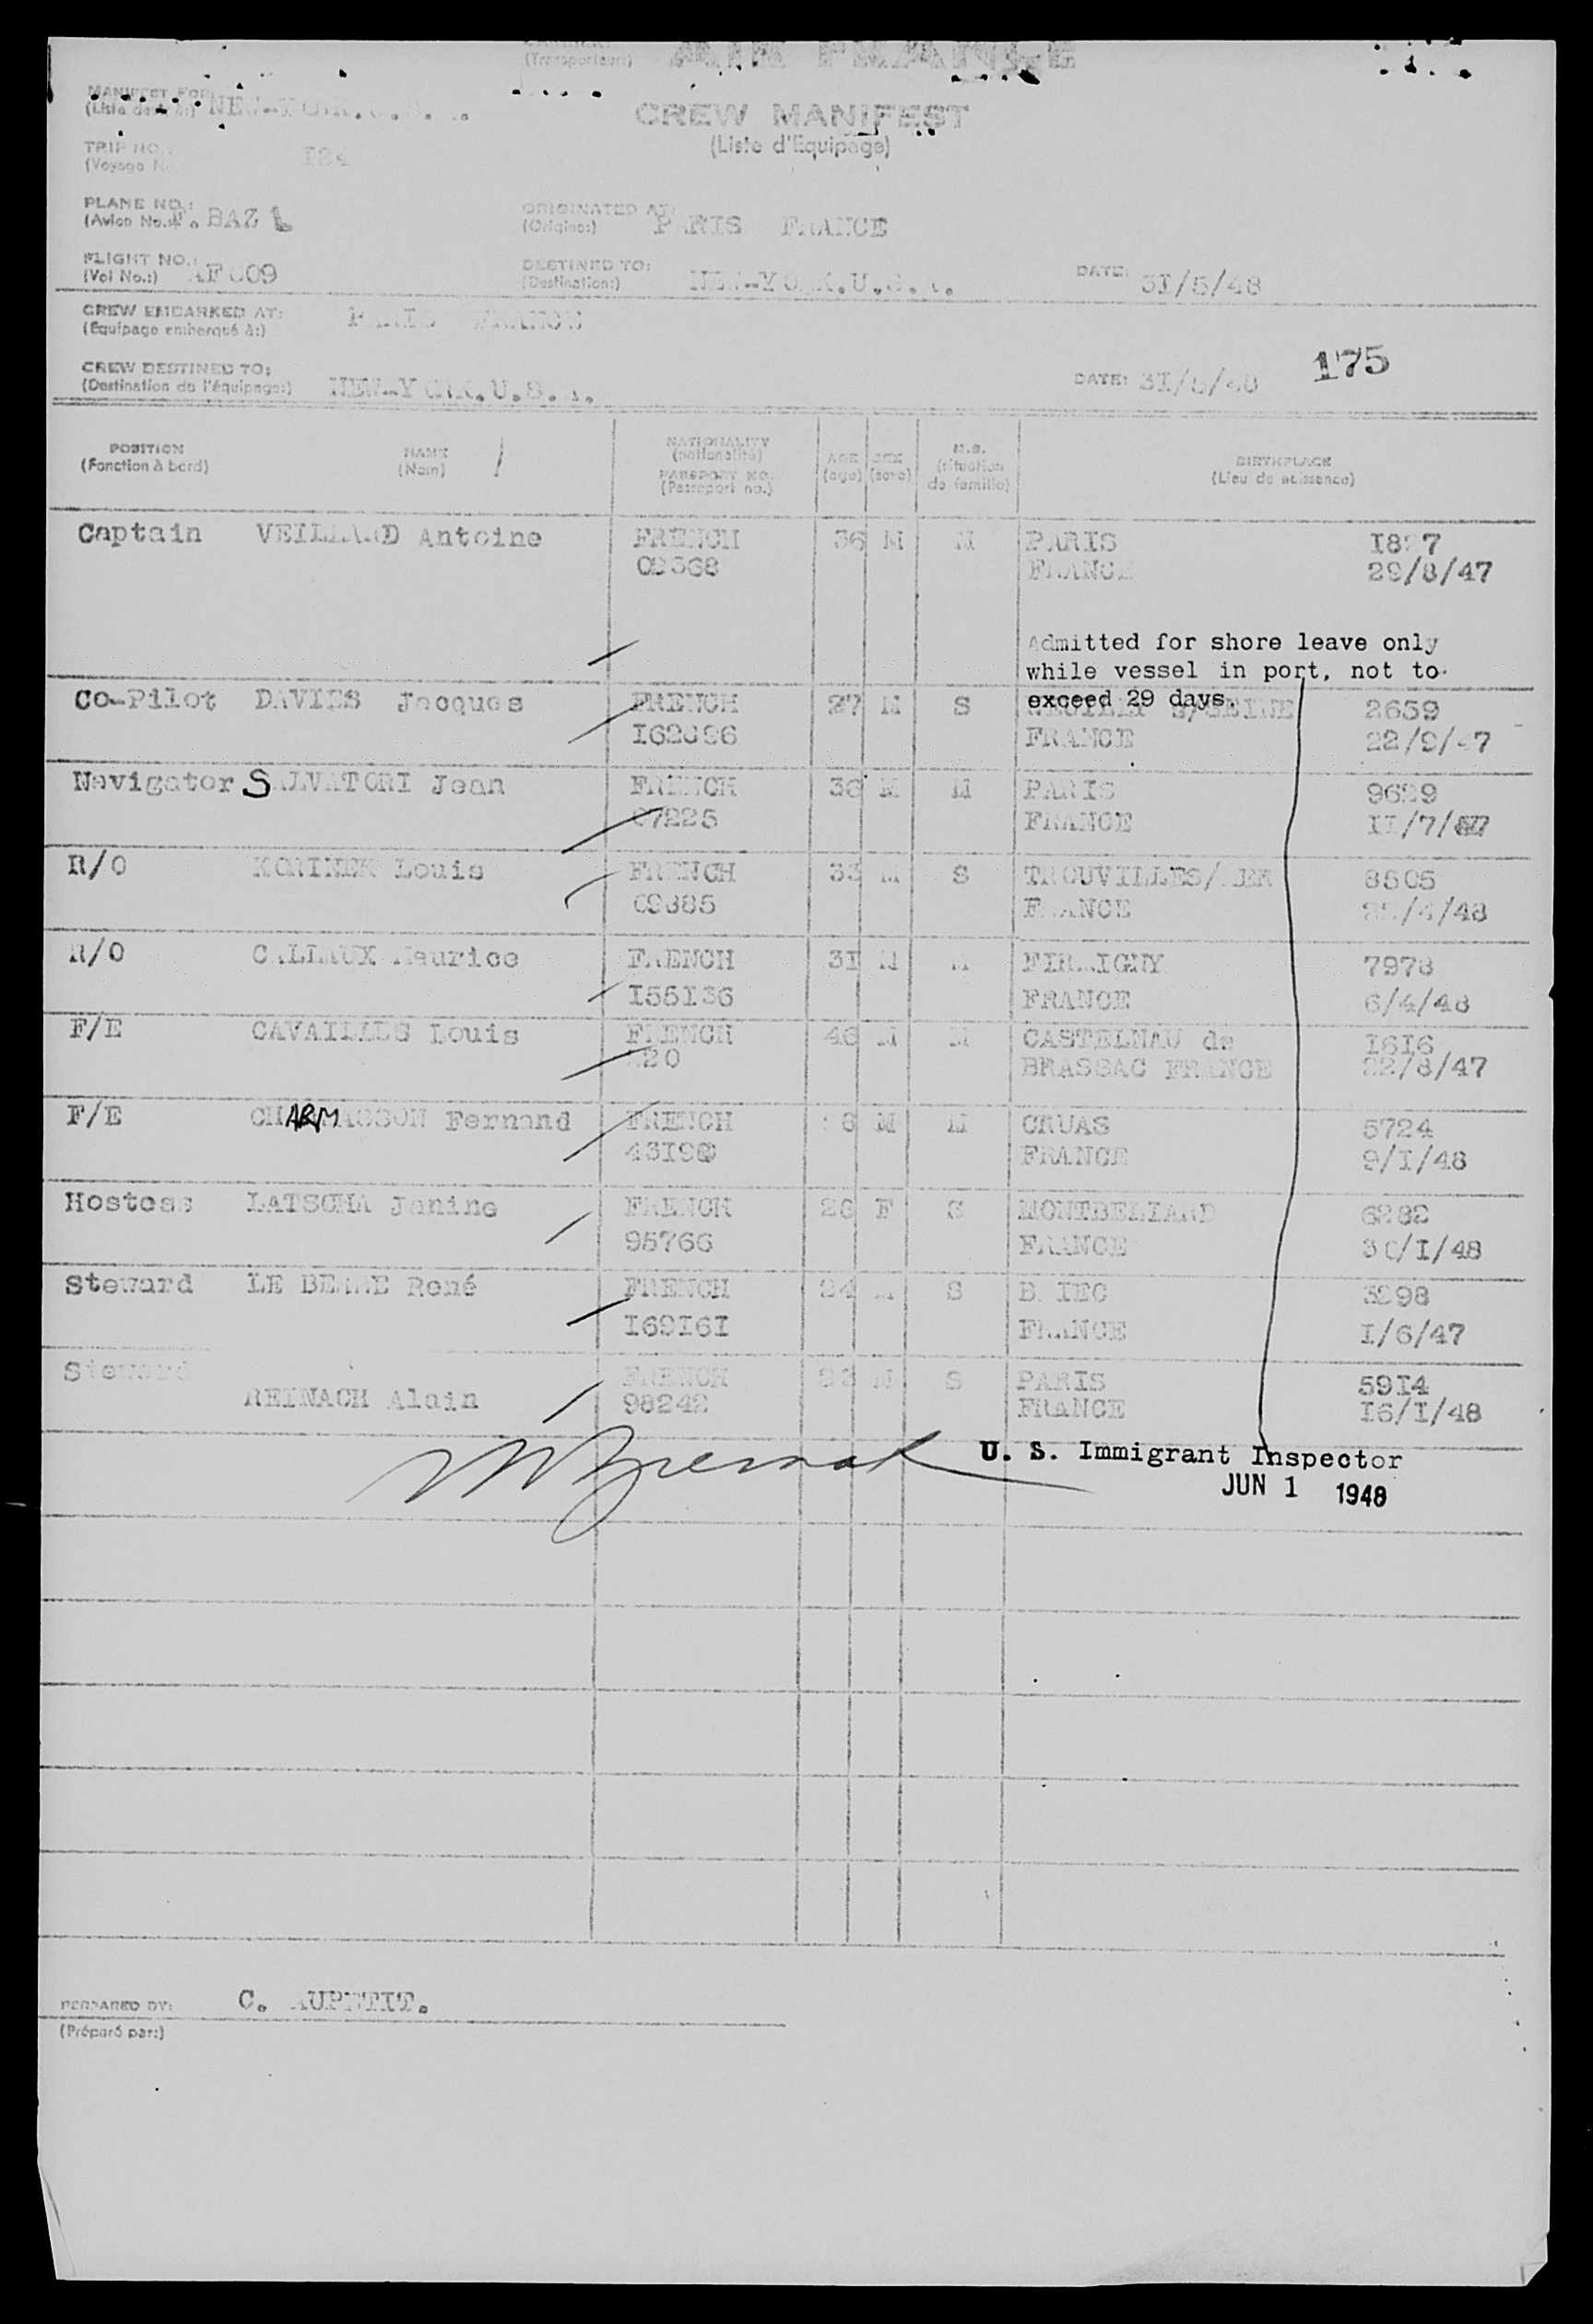 (Transporteur:) AIR FRANCE
MANIFEST FOR:
(Liste destinée à:) NEW-YORK.U.S.A.
CREW MANIFEST
(Liste d'Equipage)
TRIP NO.: I24
(Voyage No.
PLANE NO.:
(Avion No.: F. BAZ L
ORIGINATED AT:
(Origine:) PARIS FRANCE
FLIGHT NO.:
(Vol No.:) AF 009
DESTINED TO:
(Destination:) NEW-YORK.U.S.A.
DATE: 3I/5/48
CREW EMBARKED AT: PARIS FRANCE
(Équipage embarqué à:)
CREW DESTINED TO:
(Destination de l'équipage:) NEW-YORK.U.S.A.
DATE: 3I/5/48 175
POSITION NAME NATIONALITY AGE SEX M.S. BIRTHPLACE
(Fonction à bord) (Nom) (nationalité) (age) (sexe) (situation de famille) (Lieu de naissance)
PASSPORT NO.
(Passeport no.)
Captain VEILLARD Antoine FRENCH 36 M M PARIS
FRANCE 29/8/47
Admitted for shore leave only
while vessel in port, not to
exceed 29 days.
Co-Pilot DAVIES Jacques FRENCH 27 M S NEUILLY S/SEINE 2659
FRANCE 22/9/47
Navigator SALVATORI Jean FRENCH 36 M M PARIS 9629
07225 FRANCE II/7/47
R/O KORINEK Louis FRENCH 33 M S 8505
09885 FRANCE
R/O CALLAUX Maurice FRENCH 3I M M 7978
I55I36 FRANCE 6/4/48
F/E CAVAILLES Louis FRENCH 46 M M CASTELNAU de I6I6
BRASSAC FRANCE 22/8/47
F/E CHARMASSON Fernand FRENCH M M CRUAS 5724
FRANCE 9/I/48
Hostess LATSCHA Janine FRENCH 26 F S MONTBELIARD 6282
95766 FRANCE 30/I/48
Steward René FRENCH 24 M S 3298
I69I6I FRANCE I/6/47
Steward FRENCH M S PARIS 59I4
REINACH Alain 98242 FRANCE I6/I/48
U. S. Immigrant Inspector
JUN 1 1948
PREPARED BY: C. AUPETIT.
(Préparé par:)